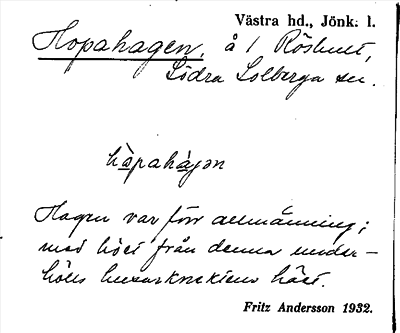 Västra hd., Jönk. l.
Hopahagen, å 1 Röshult,
Södra Solberga sn.
hòpahàgən
Hagen var förr allmänning;
med höet från denna under-
hölls husarknektens häst.
Fritz Andersson 1932.